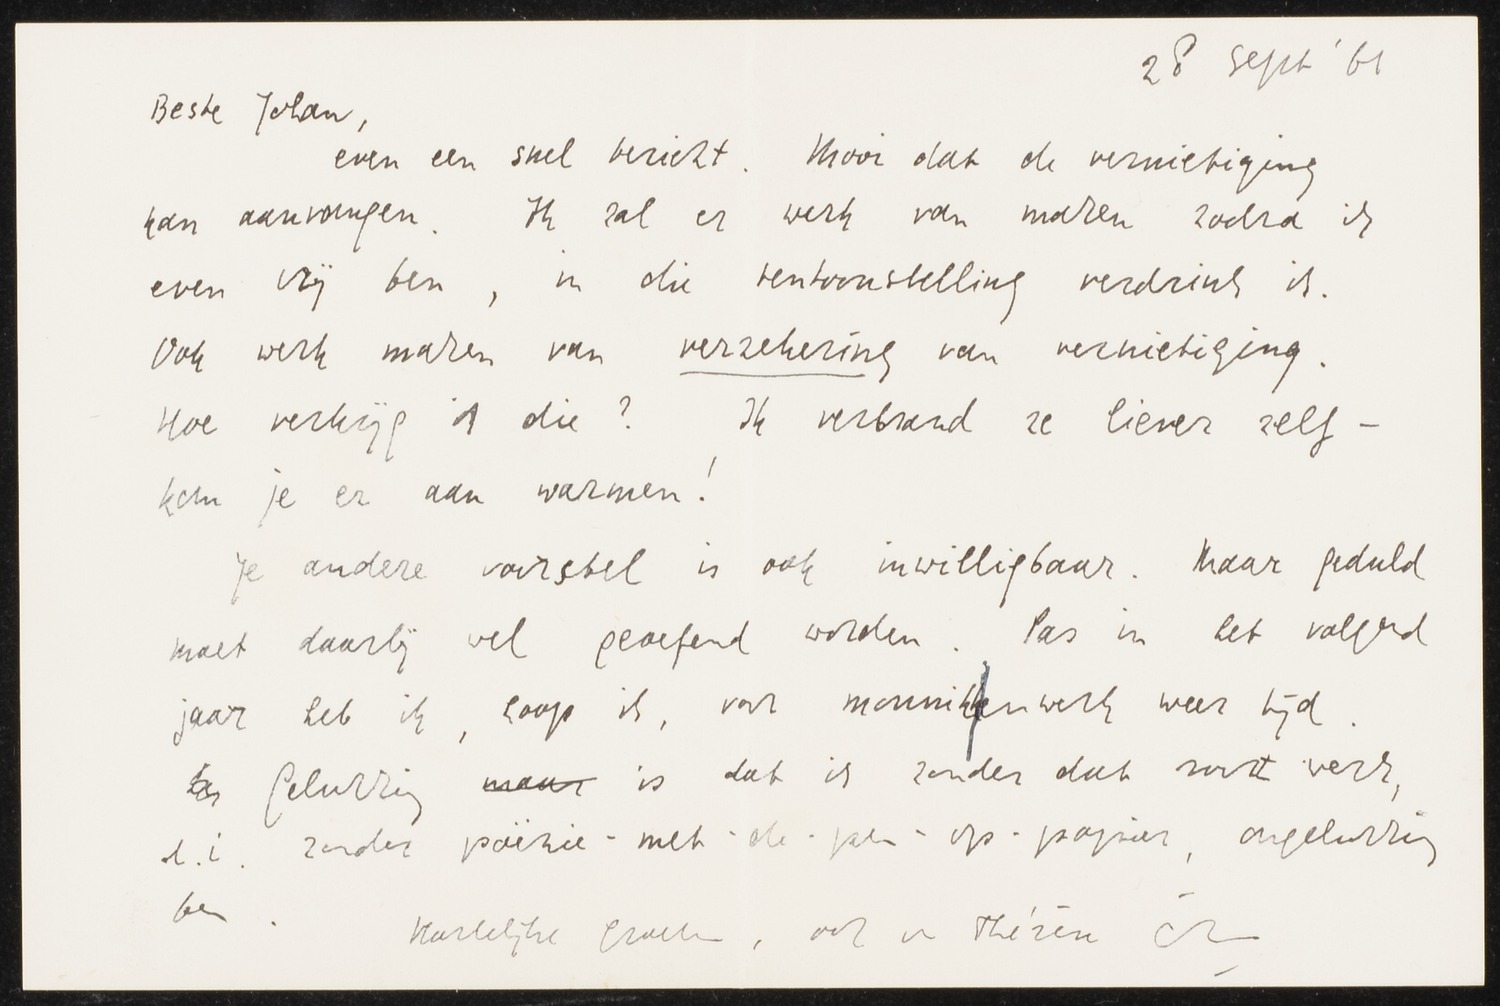 28 Sept '61
Beste Johan,
even een snel bericht. Mooi dat de vernietiging
kan aanvangen. Ik zal er werk van maken zodra ik
even vrij ben, in die tentoonstelling verdrink ik.
Ook werk maken van verzekering van vernietiging.
Hoe verkrijg ik die? Ik verbrand ze liever zelf –
kan je er aan warmen!
Je andere voorstel is ook inwilligbaar. Maar geduld
moet daarbij wel geoefend worden. Pas in het volgend
jaar heb ik, hoop ik, voor monnikenwerk weer tijd.
Gelukkig maar is dat ik zonder dat soort werk,
d.i. zonder poëzie-met-de-pen-op-papier, ongelukkig
ben.
Hartelijke groeten, ook v. Thérèse